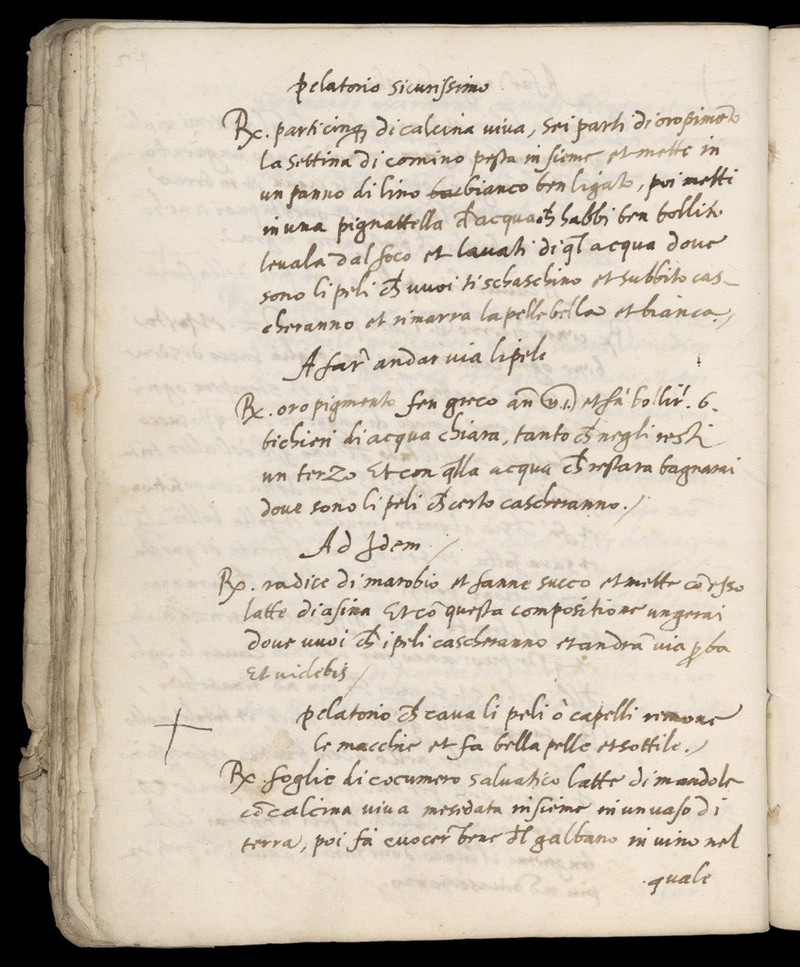 pelatorio sicurissimo
Rx. parti cinq3 di calcina viva, sei parti di oropimēto
la settima di comino pesta insieme et mette in
un panno di lino bianco ben ligato, poi metti
in una pignattella d'acqua ch habbi ben bollito
levala dal foco et lavati di ql acqua dove
sono li peli ch vuoi ti schaschino et subbito cas-
cheranno et rimarra la pelle bella et bianca./
A far andar via li peli
Rx. oropigmento fen greco an et fa bollir. 6.
bichieri di acqua chiara, tanto ch negli resti
un terzo Et con qlla acqua ch restara bagnarai
dove sono li peli ch certo cascheranno./
Ad Idem /
Rx. radice di marobio et fanne succo et mette cō esso
latte di asina Et cō questa compositione ungerai
dove vuoi ch i peli cascheranno et andrā via pba
Et videbis /
pelatorio ch cava li peli ò capelli remove
le macchie et fa bella pelle et sottile./
Rx foglie di cocumero salvatico latte di mandole
cō calcina viva mesedata insieme in un vaso di
terra, poi fà cuocer bene il galbano in vino nel
quale